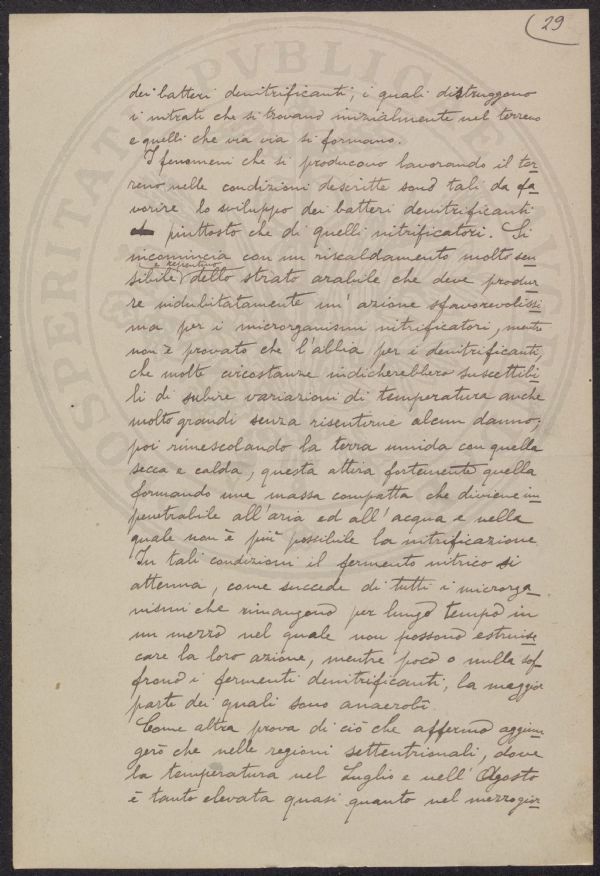 29
dei batteri denitrificanti, i quali distruggono
i nitrati che si trovano inizialmente nel terreno
e quelli che via via si formano.
I fenomeni che si producono lavorando il ter-
reno nelle condizioni descritte sono tali da fa-
vorire lo sviluppo dei batteri denitrificanti
piuttosto che di quelli nitrificatori. Si
incomincia con un riscaldamento molto sen-
e repentino
sibile dello strato arabile che deve produr-
re indubitatamente un' azione sfavorevolissi-
ma per i microrganismi nitrificatori, mentre
non è provato che l'abbia per i denitrificanti,
che molte circostanze indicherebbero suscettibi-
li di subire variazioni di temperatura anche
molto grandi senza risentirne alcun danno;
poi rimescolando la terra umida con quella
secca e calda, questa attira fortemente quella
formando una massa compatta che diviene im-
penetrabile all'aria ed all'acqua e nella
quale non è più possibile la nitrificazione.
In tali condizioni il fermento nitrico si
attenua, come succede di tutti i microrga-
nismi che rimangono per lungo tempo in
un mezzo nel quale non possono estrinse-
care la loro azione, mentre poco o nulla sof-
frono i fermenti denitrificanti, la maggior
parte dei quali sono anaerobi.
Come altra prova di ciò che affermo aggiun-
gerò che nelle regioni settentrionali, dove
la temperatura nel Luglio e nell' Agosto
è tanto elevata quasi quanto nel mezzogior-